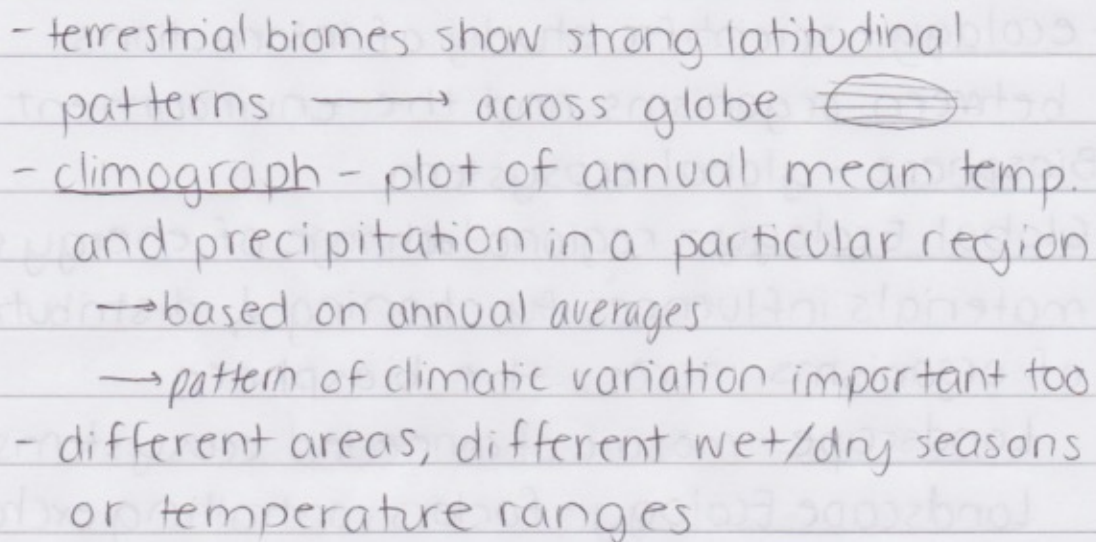 - terrestrial biomes show strong latitudinal
patterns → across globe
- climograph - plot of annual mean temp.
and precipitation in a particular region
→ based on annual averages
→ pattern of climatic variation important too
- different areas, different wet/dry seasons
or temperature ranges